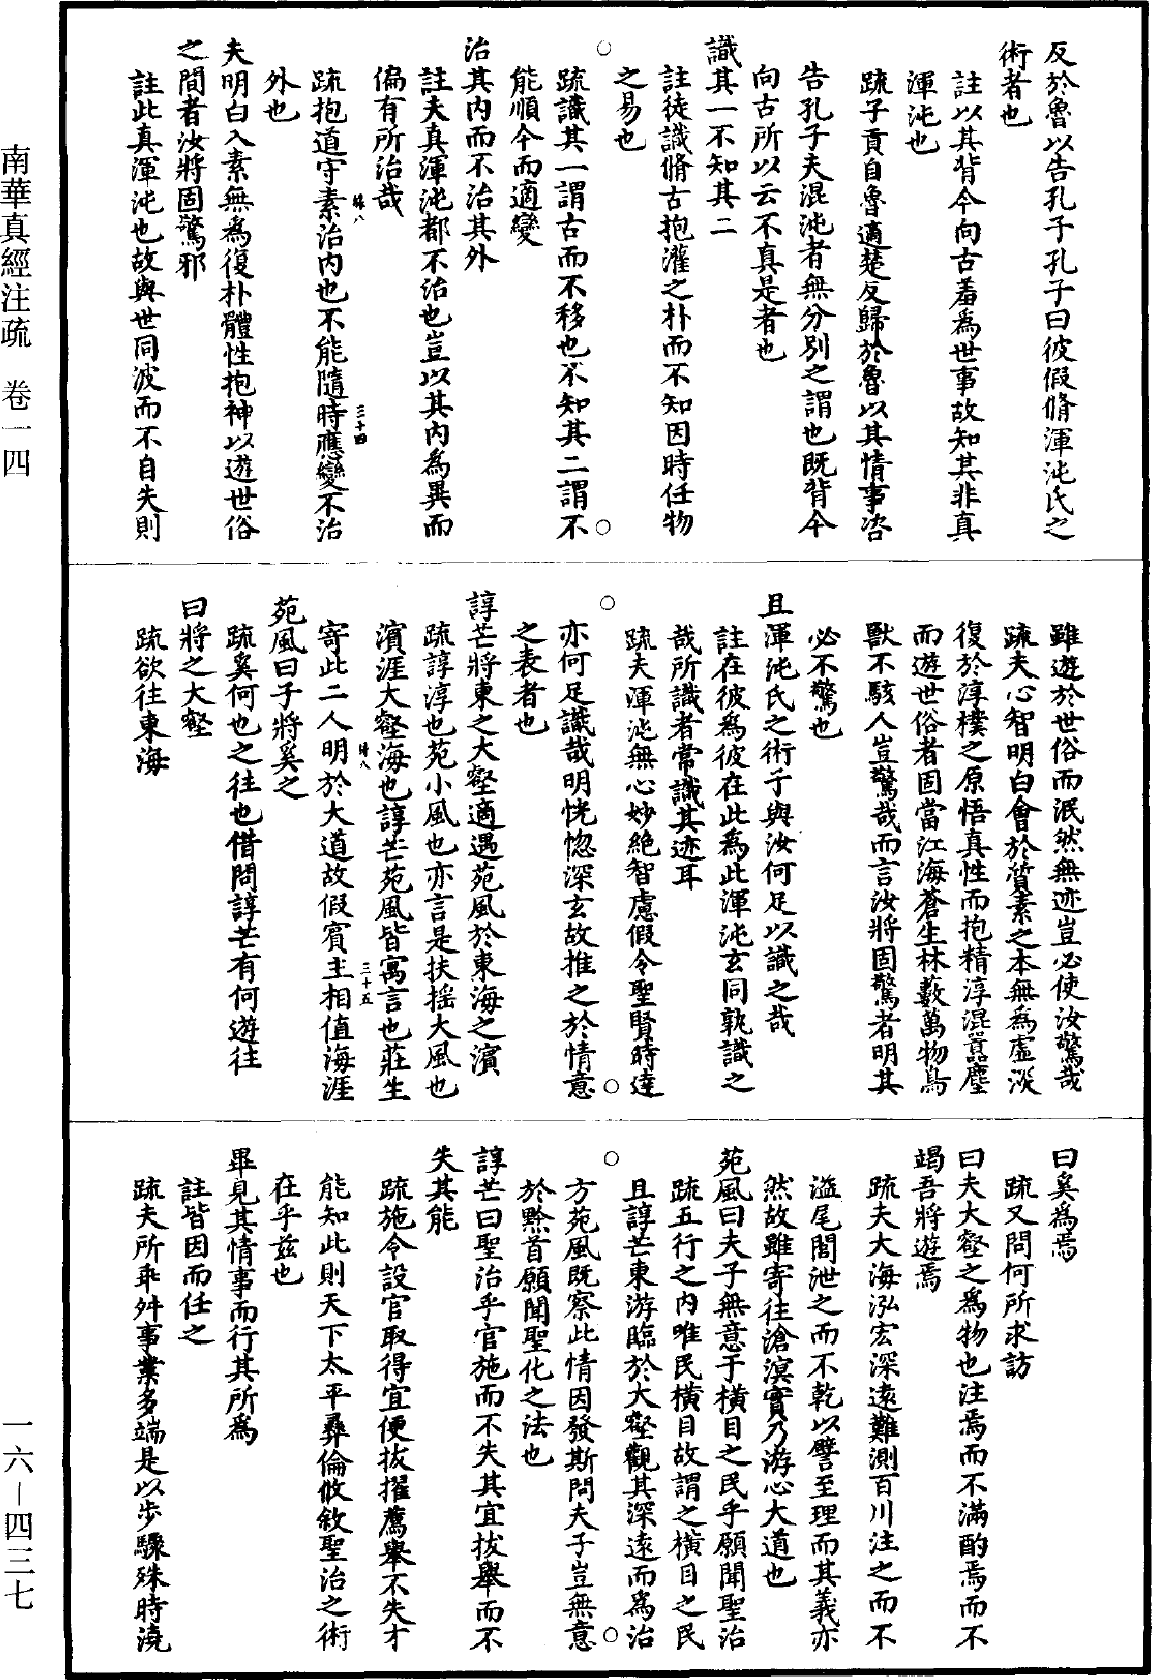 反於魯以告孔子孔子曰彼假脩渾沌氏之
術者也
註以其背今向古羞爲世事故知其非真
渾沌也
疏子貢自魯適楚反歸於魯以其情事咨
告孔子夫混沌者無分別之謂也既背今
向古所以云不真是者也
識其一不知其二
註徒識脩古抱灌之朴而不知因時任物
之易也
疏識其一謂古而不移也不知其二謂不
能順今而適變
治其內而不治其外
註夫真渾沌都不治也豈以其內爲異而
偏有所治哉
疏抱道守素治內也不能隨時應變不治
外也
夫明白入素無爲復朴體性抱神以遊世俗
之間者汝將固驚邪
註此真渾沌也故與世同波而不自失則
雖遊於世俗而泯然無迹豈必使汝驚哉
疏夫心智明白會於質素之本無爲虛淡
復於淳樸之原悟真性而抱精淳混囂塵
而遊世俗者固當江海蒼生林藪萬物鳥
獸不駭人豈驚哉而言汝將固驚者明其
必不驚也
且渾沌氏之術予與汝何足以識之哉
註在彼爲彼在此爲此渾沌玄同孰識之
哉所識者常識其迹耳
疏夫渾沌無心妙絕智慮假令聖賢時達
亦何足識哉明恍惚深玄故推之於情意
之表者也
諄芒將東之大壑適遇苑風於東海之濱
疏諄淳也苑小風也亦言是扶搖大風也
濱涯大壑海也諄芒苑風皆寓言也莊生
寄此二人明於大道故假賓主相值海涯
苑風曰子將奚之
疏奚何也之往也借問諄芒有何遊往
曰將之大壑
疏欲往東海
曰奚爲焉
疏又問何所求訪
曰夫大壑之爲物也注焉而不滿酌焉而不
竭吾將遊焉
疏夫大海泓宏深遠難測百川注之而不
溢尾閭泄之而不乾以譬至理而其義亦
然故雖寄往滄溟實乃游心大道也
苑風曰夫子無意于橫目之民乎願聞聖治
疏五行之內唯民橫目故謂之橫目之民
且諄芒東游臨於大壑觀其深遠而爲治
方苑風既察此情因發斯問夫子豈無意
於黔首願聞聖化之法也
諄芒曰聖治乎官施而不失其宜拔舉而不
失其能
疏施令設官取得宜便拔擢薦舉不失才
能知此則天下太平彝倫攸敘聖治之術
在乎茲也
畢見其情事而行其所爲
註皆因而任之
疏夫所乖舛事業多端是以步驟殊時澆
南華真經注疏 卷一四
一六—四三七
三十四
三十五